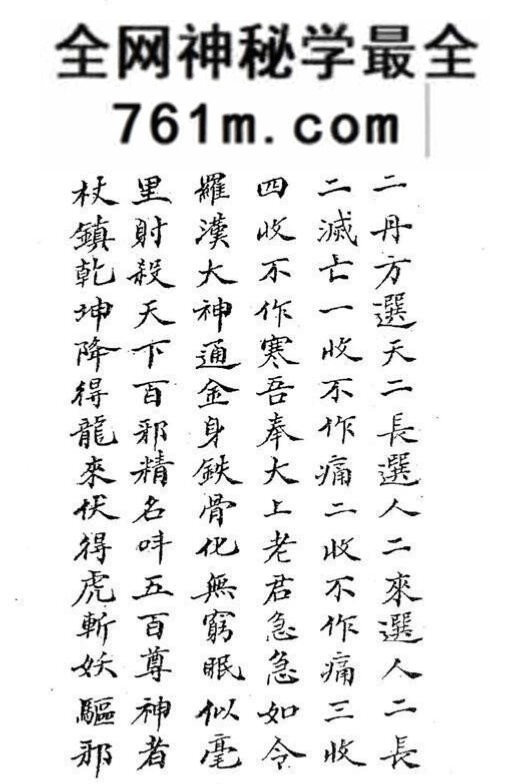 全网神秘学最全
761m.com
二丹方選天二長選人二來選人二長
二滅亡一收不作痛二收不作痛三收
四收不作寒吾奉大上老君急急如令
羅漢大神通金身鉄骨化無窮眠似毫
里射殺天下百邪精名吽五百尊神者
杖鎮乾坤降得龍來伏得虎斬妖驅邪